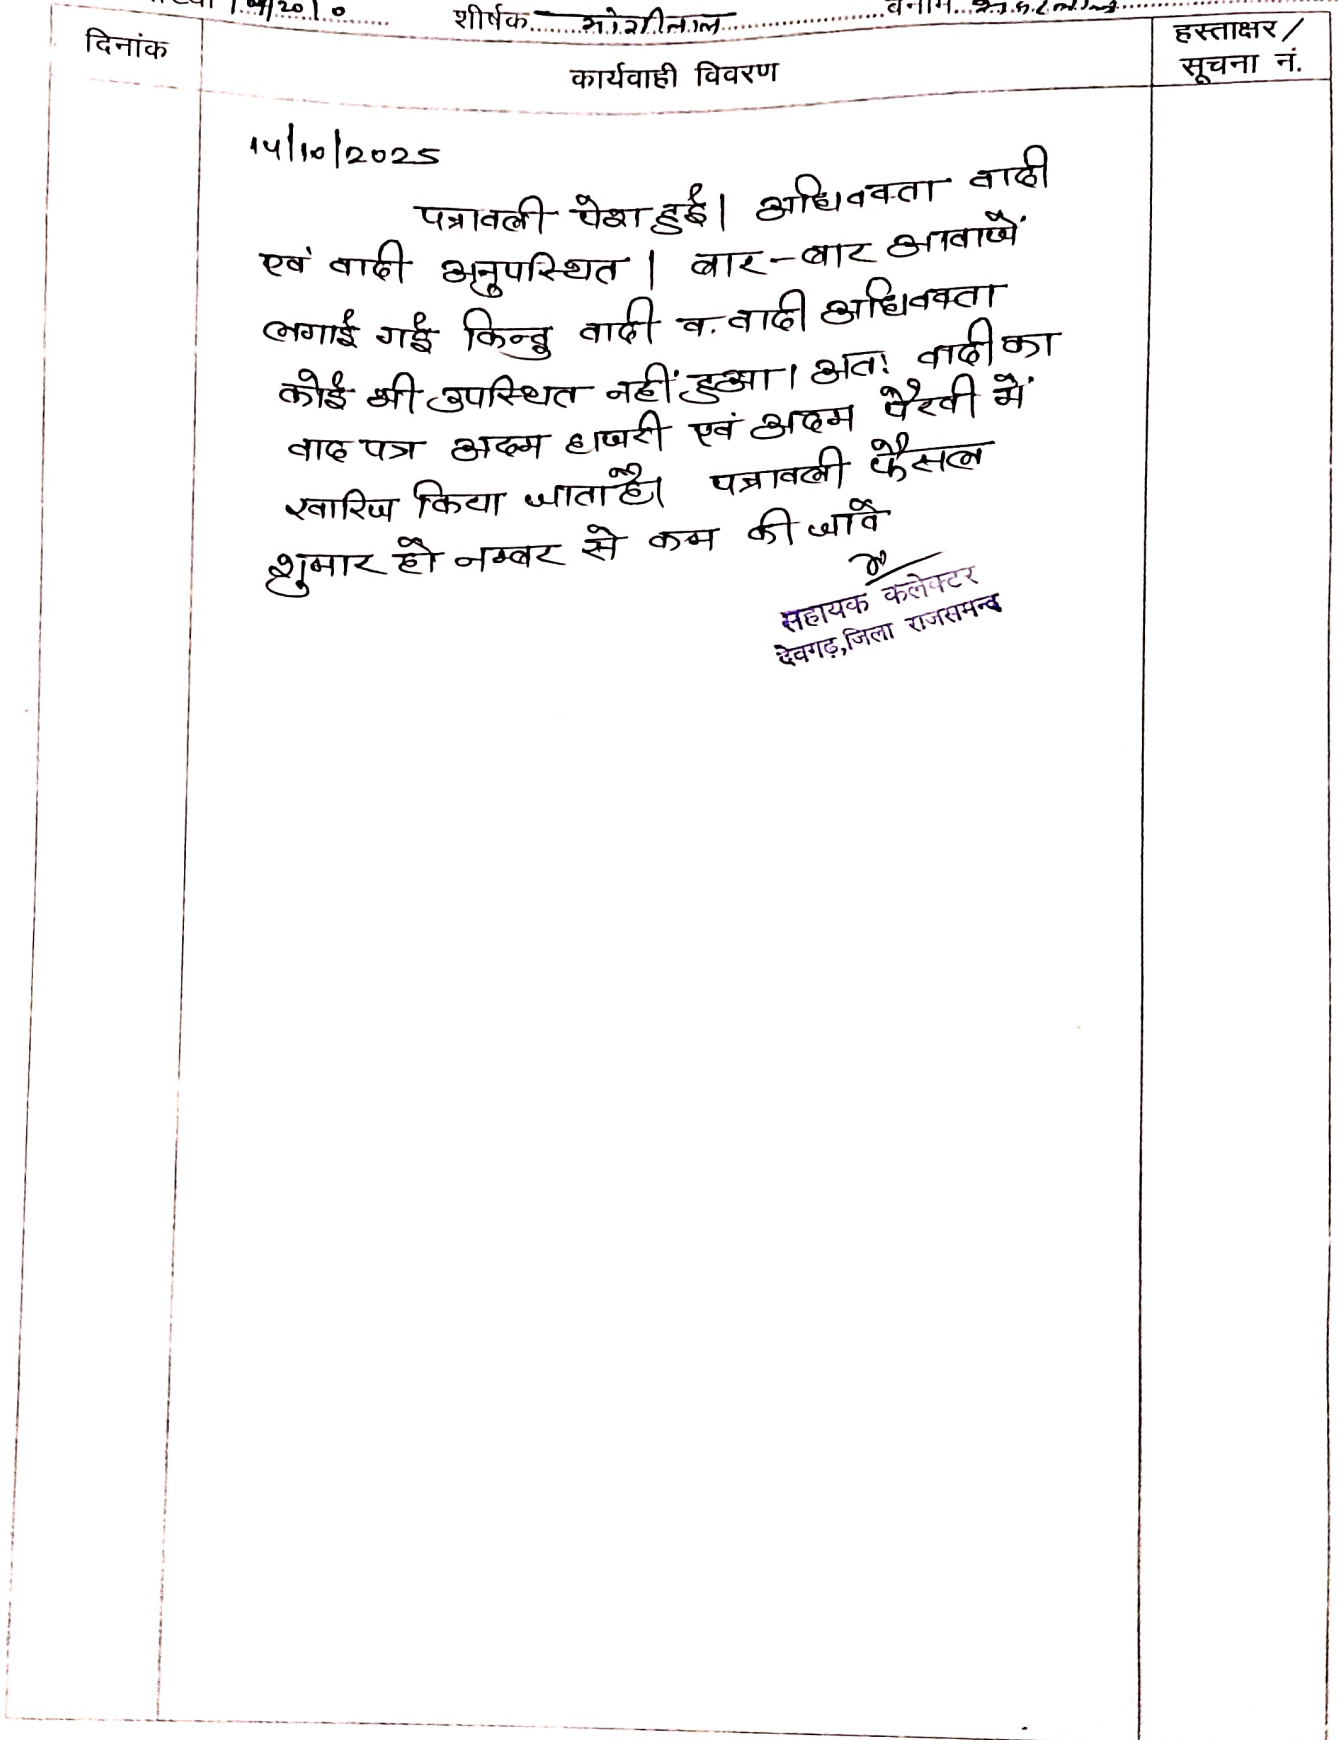 /2010 शीर्षक बनाम
दिनांक
कार्यवाही विवरण
हस्ताक्षर/
सूचना नं.
14/10/2025
पत्रावली पेश हुई। अधिवक्ता वादी
एवं वादी अनुपस्थित। बार-बार आवाजें
लगाई गई किन्तु वादी व. वादी अधिवक्ता
कोई भी उपस्थित नहीं हुआ। अतः वादी का
वाद पत्र अदम हाजरी एवं अदम पैरवी में
खारिज किया जाता है। पत्रावली फैसल
शुमार हो नम्बर से कम की जावे
सहायक कलेक्टर
देवगढ़,जिला राजसमन्द